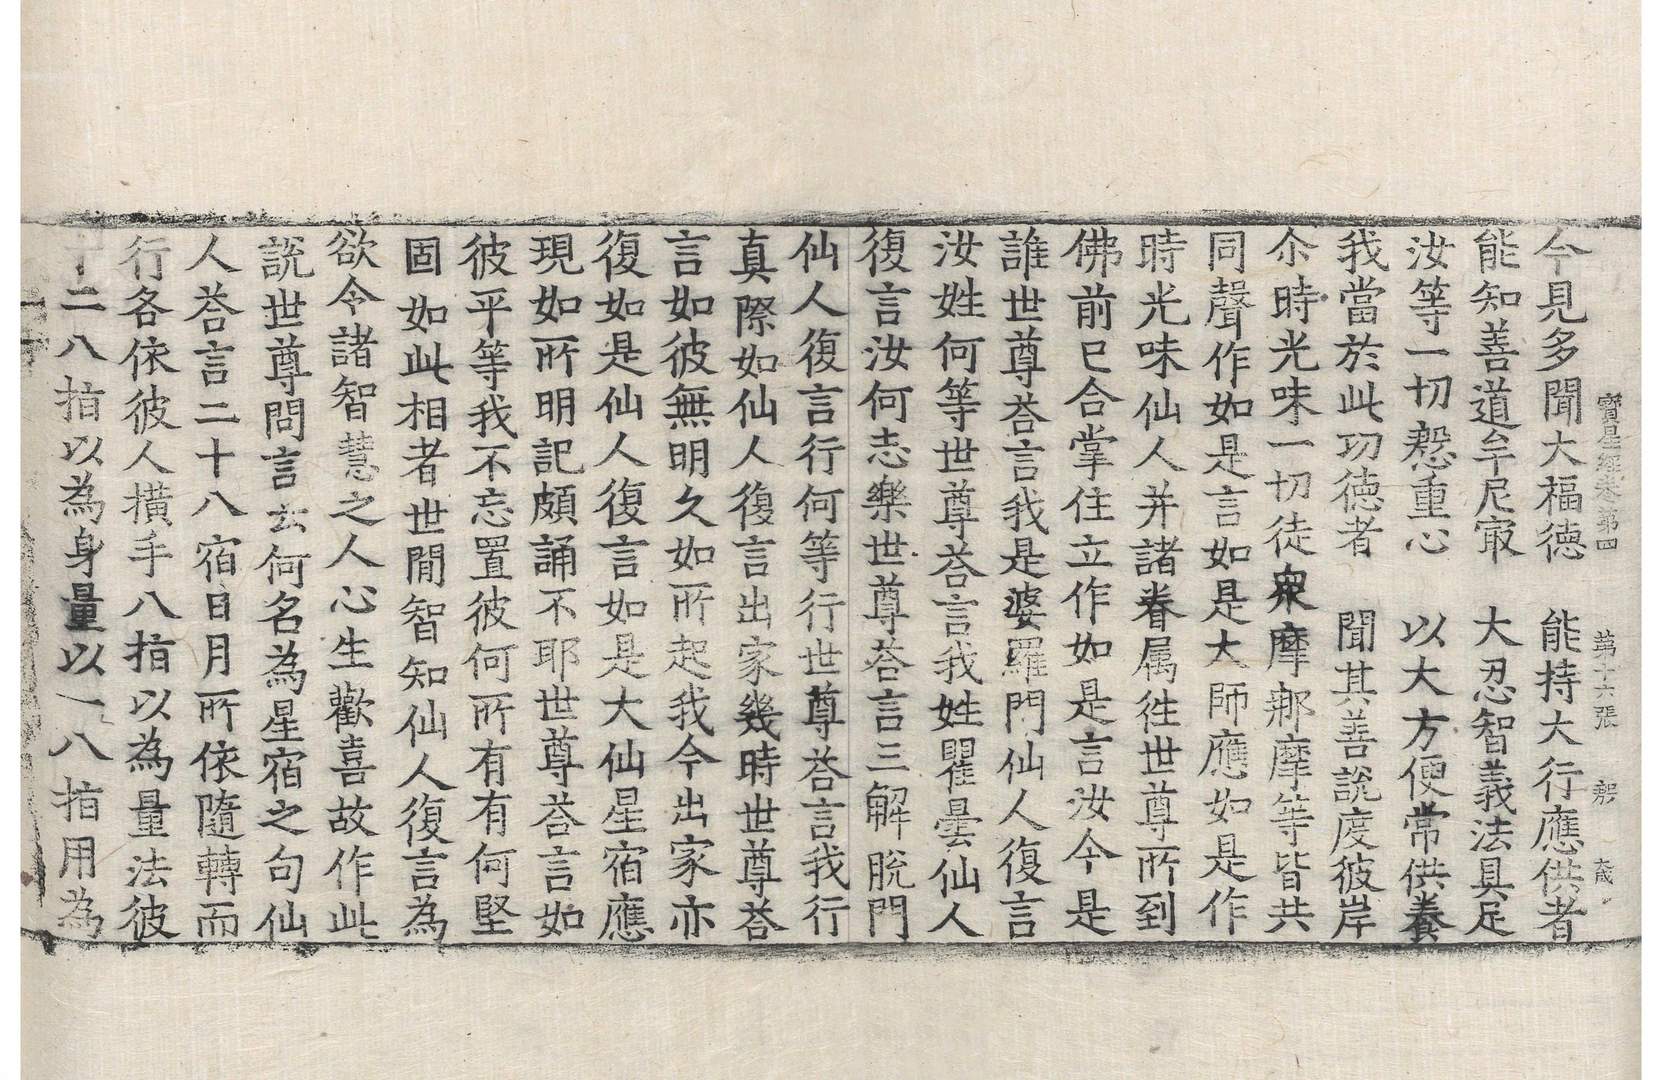 寶星経卷第四 第十六張 㓝 大藏
今見多聞大福德 能持大行應供者
能知善道牟尼㝡 大忍智義法具足
汝等一切慇重心 以大方便常供養
我當於此功德者 聞其善說度彼岸
尒時光味一切徒衆摩那摩等皆共
同聲作如是言如是大師應如是作
時光味仙人并諸眷属徃世尊所到
佛前已合掌住立作如是言汝今是
誰世尊荅言我是婆羅門仙人復言
汝姓何等世尊荅言我姓瞿曇仙人
復言汝何志樂世尊荅言三解脫門
仙人復言行何等行世尊荅言我行
真際如仙人復言出家幾時世尊荅
言如彼無明久如所起我今出家亦
復如是仙人復言如是大仙星宿應
現如所明記頗誦不耶世尊荅言如
彼平等我不忘置彼何所有有何堅
固如此相者世間智知仙人復言為
欲令諸智慧之人心生歡喜故作此
說世尊問言云何名為星宿之句仙
人荅言二十八宿日月所依隨轉而
行各依彼人橫手八指以為量法彼
十二八指以為身量以一八指用為